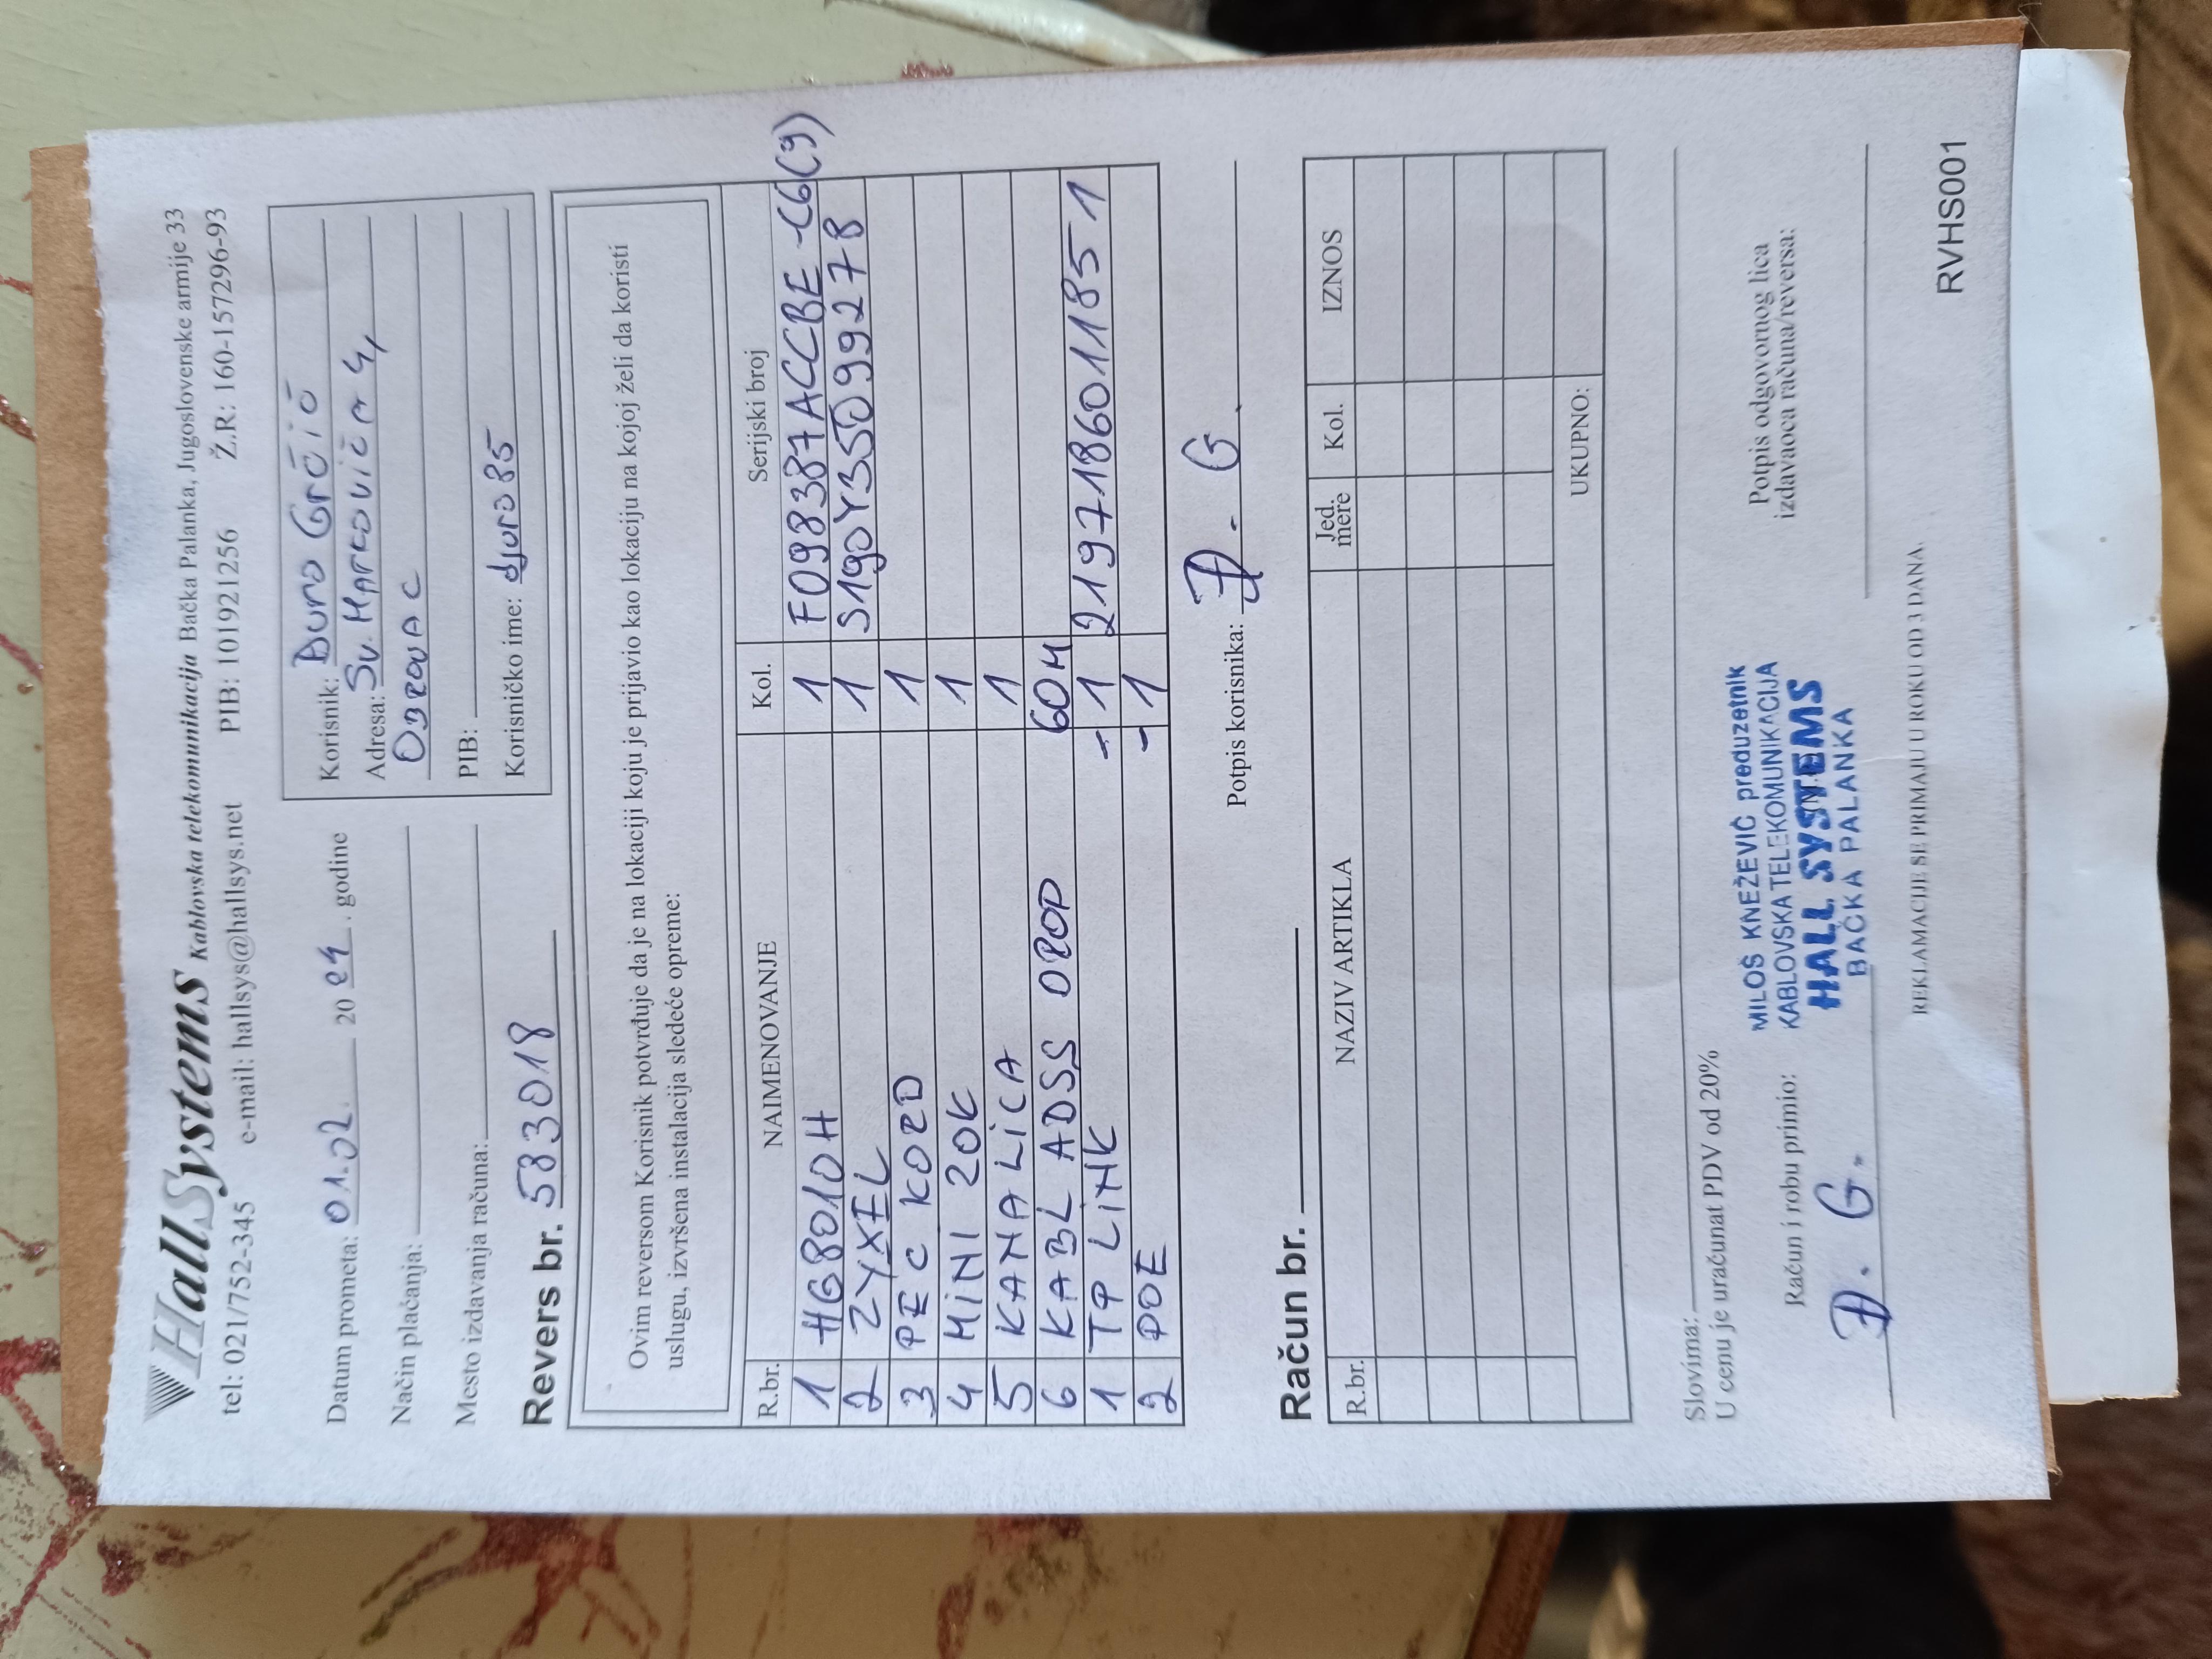 HallSystems Kablovska telekomunikacija Bačka Palanka, Jugoslovenske armije 33
tel: 021/752-345 e-mail: hallsys@hallsys.net PIB: 101921256 Ž.R: 160-157296-93
Datum prometa: 01.02. 20 24. godine
Način plaćanja:
Mesto izdavanja računa:
Korisnik: Đuro Grčić
Adresa: Sv. Markovića 4,
Obrovac
PIB:
Korisničko ime: djuro85
Revers br. 583018
Ovim reversom Korisnik potvrđuje da je na lokaciji koju je prijavio kao lokaciju na kojoj želi da koristi
uslugu, izvršena instalacija sledeće opreme:
R.br. NAIMENOVANJE Kol. Serijski broj
1 HG8010H 1 F098387ACCBE-C6(9)
2 ZYXEL 1 S190Y35099278
3 PEC KORD 1
4 MINI 20K 1
5 KANALICA 1
6 KABL ADSS DROP 60M
1 TP LINK -1 2197186011851
2 POE -1
Potpis korisnika: Đ. G.
Račun br.
R.br. NAZIV ARTIKLA Jed. mere Kol. IZNOS
UKUPNO:
Slovima:
U cenu je uračunat PDV od 20%
Račun i robu primio:
Đ. G.
MILOŠ KNEŽEVIĆ preduzetnik
KABLOVSKA TELEKOMUNIKACIJA
HALL SYSTEMS
BAČKA PALANKA
Potpis odgovornog lica
izdavaoca računa/reversa:
REKLAMACIJE SE PRIMAJU U ROKU OD 3 DANA.
RVHS001